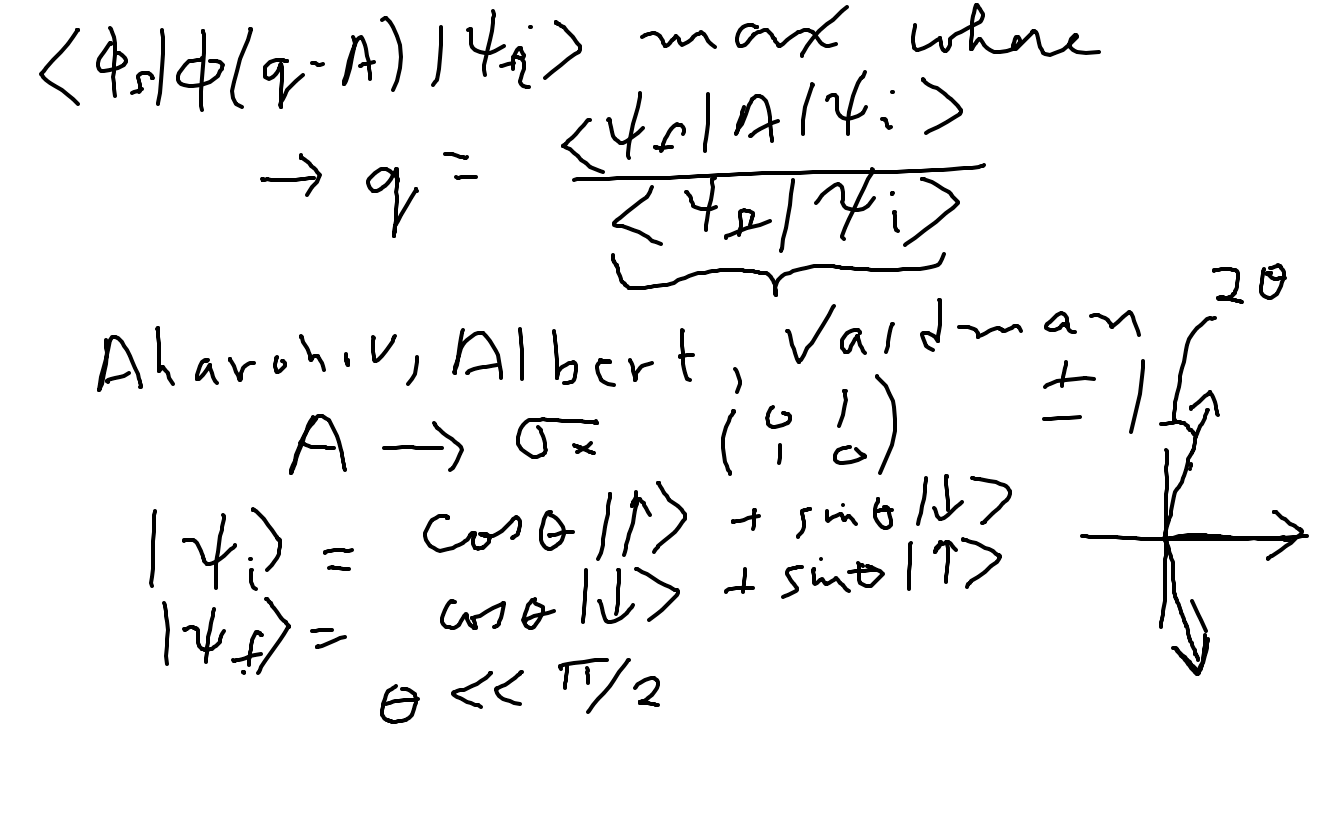 <ϕ_f|ϕ(q-A)|ψ_i> max where
→ q = <ψ_f|A|ψ_i> / <ψ_f|ψ_i>
2θ
Aharonov, Albert, Vaidman
A → σ_x (0 1 / 1 0) ± 1
|ψ_i> = cosθ|↑> + sinθ|↓>
|ψ_f> = cosθ|↓> + sinθ|↑>
θ << π/2